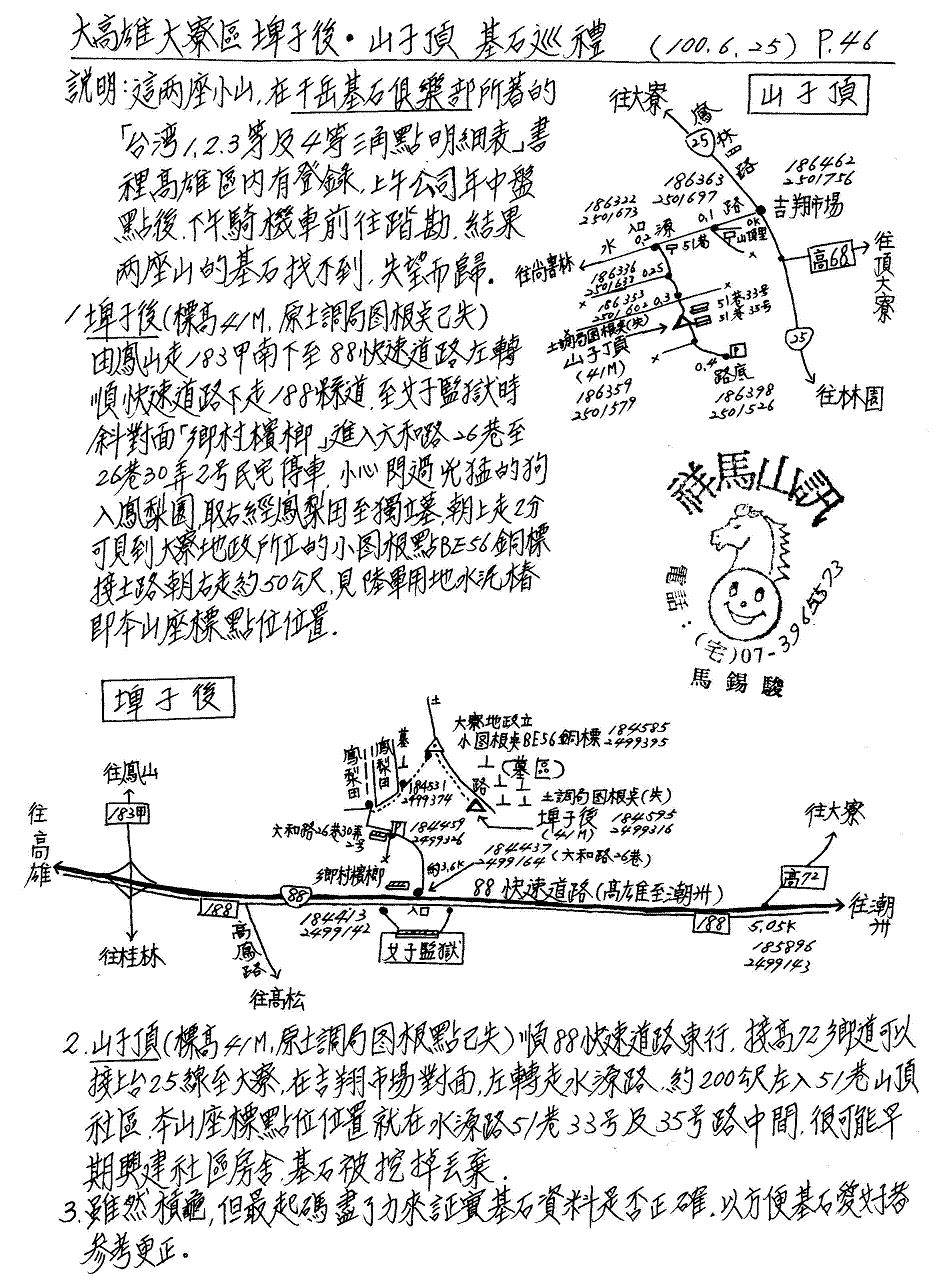 大高雄大寮區埤子後·山子頂 基石巡禮 (100.6.25) P.46
說明:這兩座小山,在千岳基石俱樂部所著的
「台湾1.2.3等及4等三角點明細表」書
裡高雄區內有登錄,上午公司年中盤
點後,下午騎機車前往踏勘,結果
兩座山的基石找不到,失望而歸.
山子頂
往大寮
鳳林四路
25
186462
2501756
吉翔市場
186363
2501697
186322
2501673
入口
0.2
水源路
0.1
0K
山頂里
51巷
往尚書林
高68
往頂大寮
186336
2501633
0.25
186353
2501602
0.3
51巷33号
51巷35号
土調局图根奌(失)
山子頂
(41M)
186359
2501579
0.4
P
路底
186398
2501526
25
往林園
1.埤子後(標高41M,原土調局图根奌已失)
由鳳山走183甲南下至88快速道路左轉
順快速道路下走188縣道,至女子監獄時
斜對面「鄉村檳榔」進入六和路26巷至
26巷30弄2号民宅停車,小心閃過兇猛的狗
入鳳梨園,取右經鳳梨田至獨立墓,朝上走2分
可見到大寮地政所立的小图根點BE56銅標
接土路朝右走約50公尺,見陸軍用地水泥樁
即本山座標點位位置.
祥馬山訊
電話:(宅)07-3965573
馬錫駿
埤子後
土
大寮地政立
小图根奌BE56銅標
184585
2499395
鳳梨田
鳳梨田
墓
184531
2499374
路
(墓區)
土調局图根奌(失)
埤子後
(41M)
184595
2499316
往鳳山
183甲
往高雄
六和路26巷30弄2号
P
184459
2499326
184437
2499164
(六和路26巷)
約3.6K
鄉村檳榔
往大寮
高72
88
88快速道路(高雄至潮州)
往潮州
188
184413
2499142
入口
女子監獄
188
5.05K
185896
2499143
往桂林
高鳳路
往高松
2.山子頂(標高41M,原土調局图根點已失)順88快速道路東行,接高72鄉道可以
接上台25線至大寮,在吉翔市場對面,左轉走水源路,約200公尺左入51巷山頂
社區,本山座標點位位置就在水源路51巷33号及35号路中間,很可能早
期興建社區房舍,基石被挖掉丟棄.
3.雖然積龜,但最起碼盡了力來証實基石資料是否正確,以方便基石愛好者
參考更正.